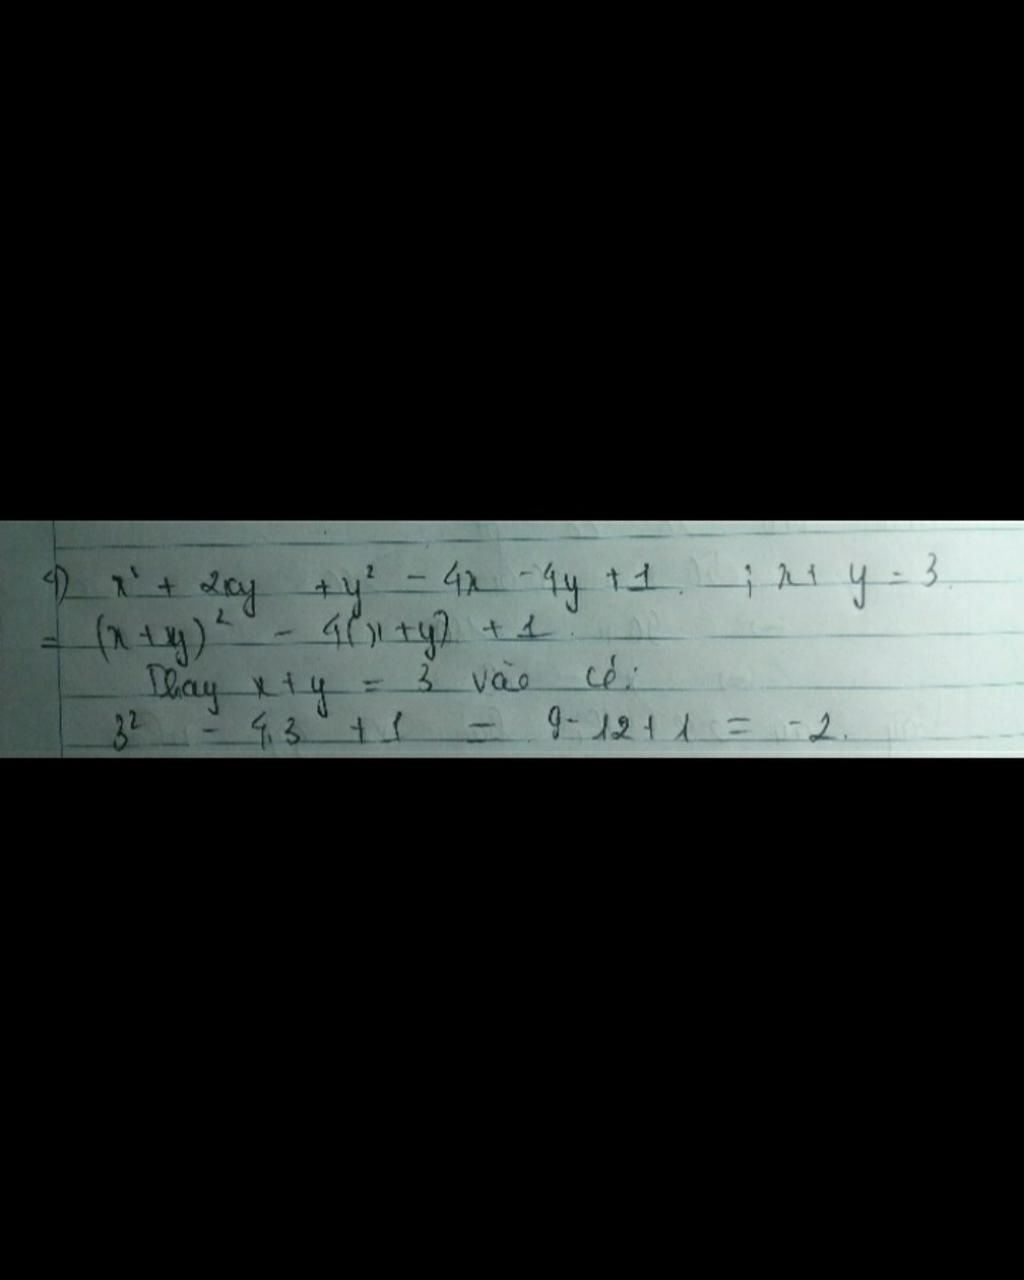 c) x² + 2xy + y² - 4x - 4y + 1. ; x + y = 3.
= (x + y)² - 4(x + y) + 1.
Thay x + y = 3 vào có:
3² - 4.3 + 1 = 9 - 12 + 1 = -2.